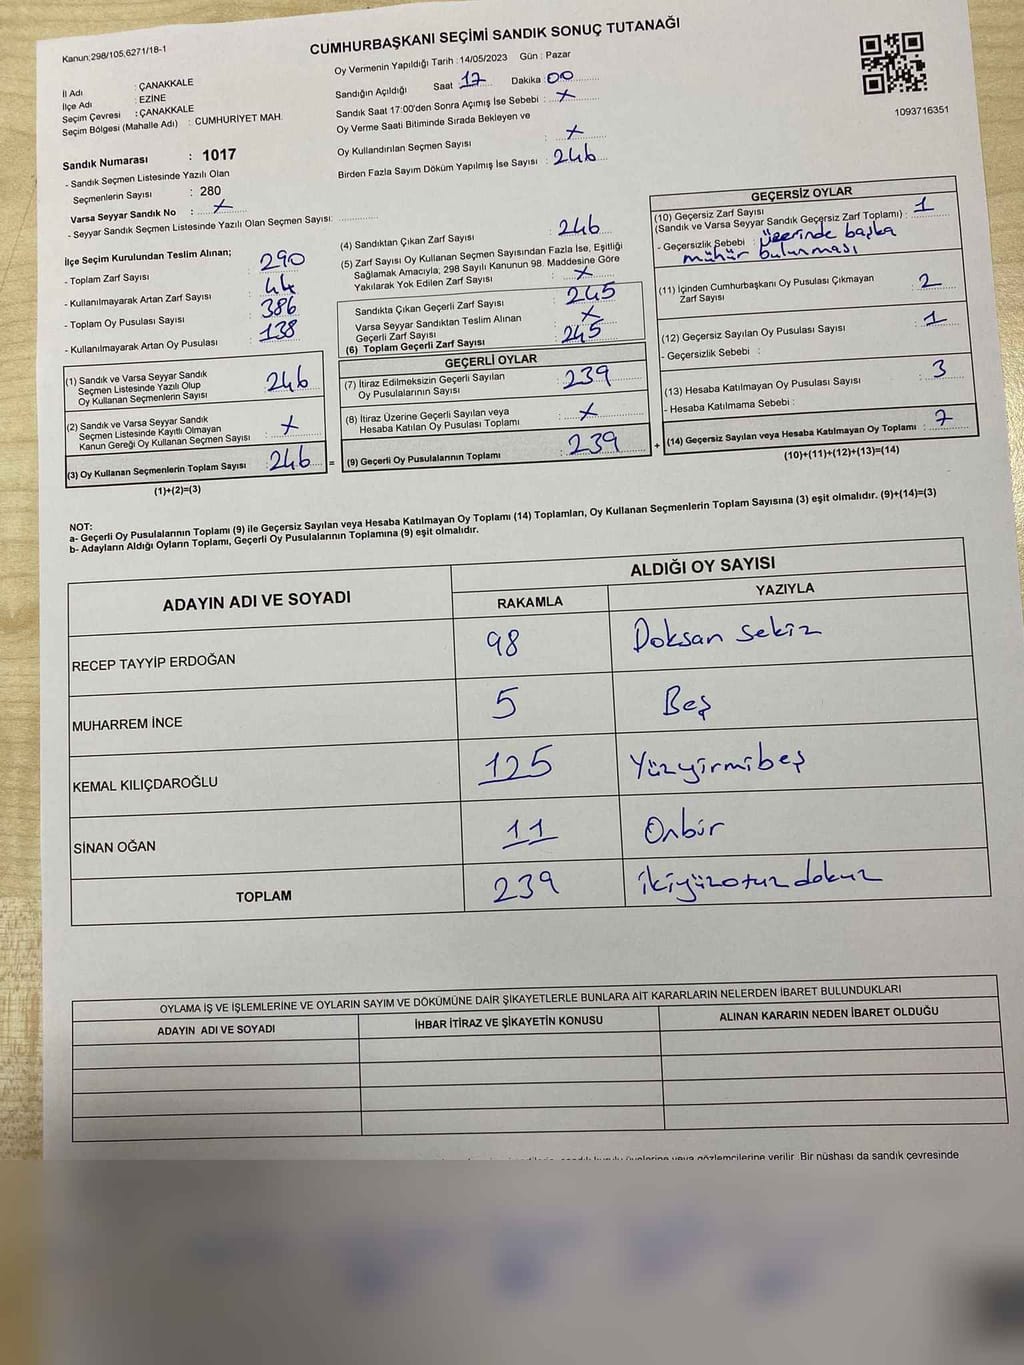 Kanun;298/105,6271/18-1
CUMHURBAŞKANI SEÇİMİ SANDIK SONUÇ TUTANAĞI
İl Adı : ÇANAKKALE
İlçe Adı : EZİNE
Seçim Çevresi : ÇANAKKALE
Seçim Bölgesi (Mahalle Adı) : CUMHURİYET MAH.
Sandık Numarası : 1017
- Sandık Seçmen Listesinde Yazılı Olan
Seçmenlerin Sayısı : 280
Varsa Seyyar Sandık No : X
- Seyyar Sandık Seçmen Listesinde Yazılı Olan Seçmen Sayısı:
Oy Vermenin Yapıldığı Tarih : 14/05/2023 Gün : Pazar
Sandığın Açıldığı Saat 17 Dakika : 00
Sandık Saat 17:00'den Sonra Açımış İse Sebebi : X
Oy Verme Saati Bitiminde Sırada Bekleyen ve
Oy Kullandırılan Seçmen Sayısı : X
Birden Fazla Sayım Döküm Yapılmış İse Sayısı : 246
1093716351
İlçe Seçim Kurulundan Teslim Alınan;
- Toplam Zarf Sayısı : 290
- Kullanılmayarak Artan Zarf Sayısı : 44
- Toplam Oy Pusulası Sayısı : 386
- Kullanılmayarak Artan Oy Pusulası : 138
(1) Sandık ve Varsa Seyyar Sandık
Seçmen Listesinde Yazılı Olup
Oy Kullanan Seçmenlerin Sayısı : 246
(2) Sandık ve Varsa Seyyar Sandık
Seçmen Listesinde Kayıtlı Olmayan
Kanun Gereği Oy Kullanan Seçmen Sayısı : X
(3) Oy Kullanan Seçmenlerin Toplam Sayısı : 246
(1)+(2)=(3)
(4) Sandıktan Çıkan Zarf Sayısı : 246
(5) Zarf Sayısı Oy Kullanan Seçmen Sayısından Fazla İse, Eşitliği
Sağlamak Amacıyla, 298 Sayılı Kanunun 98. Maddesine Göre
Yakılarak Yok Edilen Zarf Sayısı : X
Sandıkta Çıkan Geçerli Zarf Sayısı : 245
Varsa Seyyar Sandıktan Teslim Alınan
Geçerli Zarf Sayısı : X
(6) Toplam Geçerli Zarf Sayısı : 245
GEÇERLİ OYLAR
(7) İtiraz Edilmeksizin Geçerli Sayılan
Oy Pusulalarının Sayısı : 239
(8) İtiraz Üzerine Geçerli Sayılan veya
Hesaba Katılan Oy Pusulası Toplamı : X
= (9) Geçerli Oy Pusulalarının Toplamı : 239 +
GEÇERSİZ OYLAR
(10) Geçersiz Zarf Sayısı
(Sandık ve Varsa Seyyar Sandık Geçersiz Zarf Toplamı) : 1
- Geçersizlik Sebebi : üzerinde başka
mühür bulunması
(11) İçinden Cumhurbaşkanı Oy Pusulası Çıkmayan
Zarf Sayısı : 2
(12) Geçersiz Sayılan Oy Pusulası Sayısı : 1
- Geçersizlik Sebebi :
(13) Hesaba Katılmayan Oy Pusulası Sayısı : 3
- Hesaba Katılmama Sebebi :
(14) Geçersiz Sayılan veya Hesaba Katılmayan Oy Toplamı : 7
(10)+(11)+(12)+(13)=(14)
NOT:
a- Geçerli Oy Pusulalarının Toplamı (9) ile Geçersiz Sayılan veya Hesaba Katılmayan Oy Toplamı (14) Toplamları, Oy Kullanan Seçmenlerin Toplam Sayısına (3) eşit olmalıdır. (9)+(14)=(3)
b- Adayların Aldığı Oyların Toplamı, Geçerli Oy Pusulalarının Toplamına (9) eşit olmalıdır.
ADAYIN ADI VE SOYADI
ALDIĞI OY SAYISI
RAKAMLA YAZIYLA
RECEP TAYYİP ERDOĞAN 98 Doksan sekiz
MUHARREM İNCE 5 Beş
KEMAL KILIÇDAROĞLU 125 Yüzyirmibeş
SİNAN OĞAN 11 Onbir
TOPLAM 239 ikiyüzotuzdokuz
OYLAMA İŞ VE İŞLEMLERİNE VE OYLARIN SAYIM VE DÖKÜMÜNE DAİR ŞİKAYETLERLE BUNLARA AİT KARARLARIN NELERDEN İBARET BULUNDUKLARI
ADAYIN ADI VE SOYADI İHBAR İTİRAZ VE ŞİKAYETİN KONUSU ALINAN KARARIN NEDEN İBARET OLDUĞU
sandık kurulu üyelerine veya gözlemcilerine verilir. Bir nüshası da sandık çevresinde